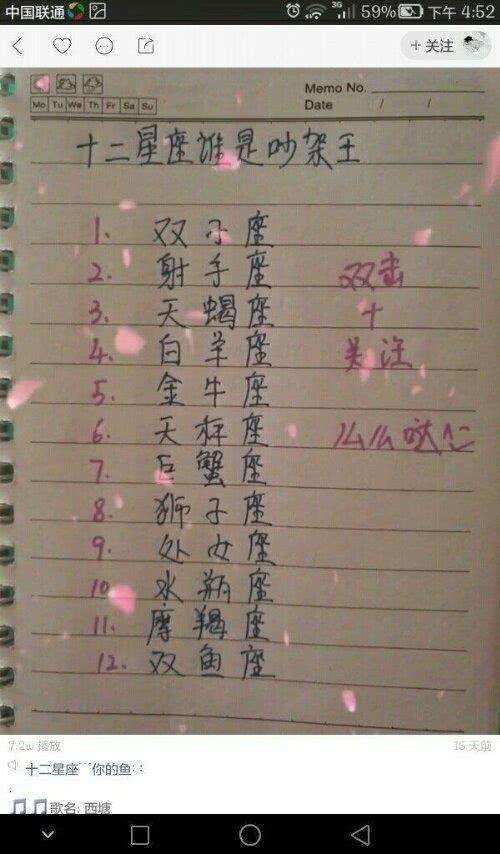 中国联通 3G 59% 下午 4:52
+关注
Memo No.
Mo Tu We Th Fr Sa Su
Date / /
十二星座谁是吵架王
1. 双子座
2. 射手座 双击
3. 天蝎座 +
4. 白羊座 关注
5. 金牛座
6. 天秤座 么么哒~
7. 巨蟹座
8. 狮子座
9. 处女座
10 水瓶座
11. 摩羯座
12. 双鱼座
7.2w 播放 16 天前
十二星座 你的鱼
歌名: 西塘